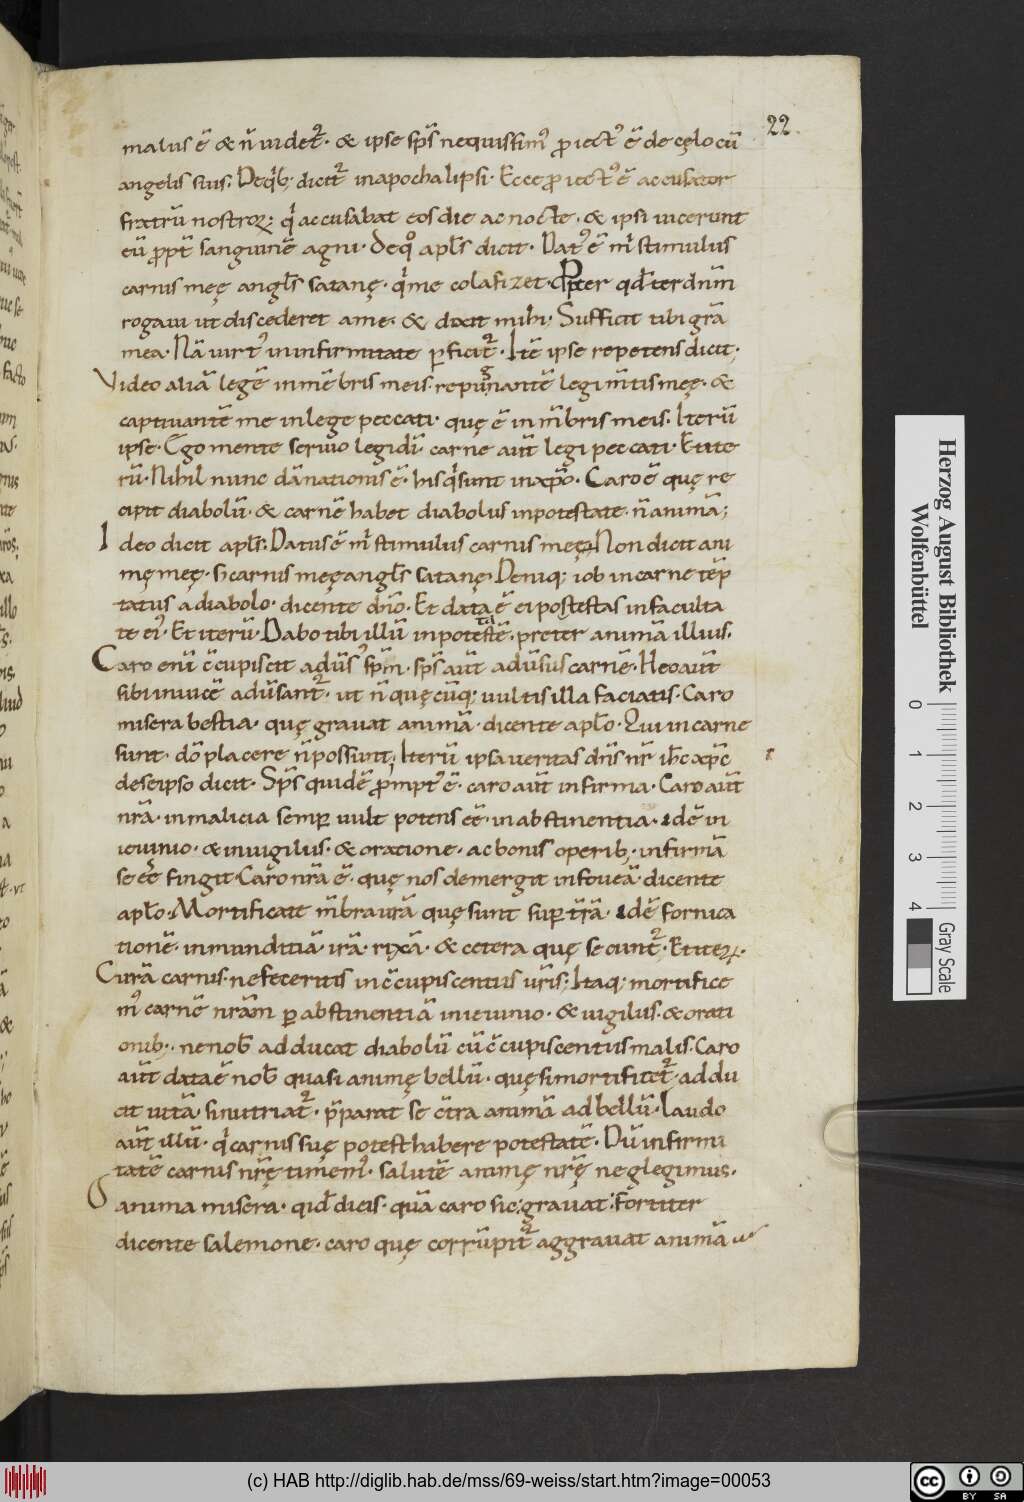 22
malus ē & n̄ uidet᷑. & ipse sp̄s nequissim᾽ ꝓiect᾽ ē de cęlo cū
angelis suis. De qb; dicit᷑ in apochalipsi. Ecce ꝓiect᾽ ē accusator
fratrū nostroꝝ; q̇ accusabat eos die ac nocte. & ipsi uicerunt
eū ꝓpt̄ sanguinē agni. De q̊ apl̄s dicit. Dat᾽ ē m̄ stimulus
carnis meę angl̄s satanę. q̇ me colafizet. Ꝓpter qd̄ ter dn̄m
rogaui ut discederet a me. & dixit mihi. Sufficit tibi gr̄a
mea. Nā uirt᾽ in infirmitate ꝑficit᷑. Itē ipse repetens dicit;
Video aliā legē in mēbris meis repugnantē legi m̄tis meę. &
captiuantē me in lege peccati. quę ē in m̄bris meis. Iterū
ipse. Ego mente seruio legi dī. carne aūt legi peccati. Et ite
rū. Nihil nunc dānationis ē. his q̇ sunt in xp̄o. Caro ē quę re
cipit diabolū. & carnē habet diabolus in potestate. n̄ animā;
Ideo dicit apl̄s. Datus ē m̄ stimulus carnis meę. Non dicit ani
mę meę. s; carnis meę angl̄s satanę. Deniq; iob in carne tēp
tatus a diabolo. dicente dn̄o. Et data ē ei postestas in faculta
te ei᾽. Et iterū. Dabo tibi illū in potestatē. preter animā illius.
Caro enī c̄cupiscit adūs᾽ sp̄m. sp̄s aūt adūsus carnē. Heo aūt
sibi inuicē adūsant᷑. ut n̄ quęcūq; uultis illa faciatis. Caro
misera bestia. quę grauat animā. dicente apl̄o. Qui in carne
sunt. dō placere n̄ possunt; Iterū ipsa ueritas dn̄s nr̄ ih̄c xp̄c
de seipso dicit. Sp̄s quidē ꝓmpt᾽ ē. caro aūt infirma. Caro aūt
nr̄a. in malicia semꝑ uult potens eē. in abstinentia. idē in
ieiunio. & in uigiliis. & oratione. ac bonis operib; infirmā
se eē fingit. Caro nr̄a ē. quę nos demergit in foueā. dicente
apl̄o. Mortificate m̄bra ur̄a quę sunt suꝑ tr̄ā. idē fornica
tionē. inmunditiā. irā. rixā. & cetera quę secunt᷑. Et iteꝝ.
Curā carnis ne feceritis in c̄cupiscentiis ur̄is; Itaq; mortifice
m᾽ carnē nr̄am ꝑ abstinentiā in ieiunio. & uigiliis. & orati
onib;. ne nob̄ adducat diabolū cū c̄cupiscentiis malis. Caro
aūt data ē nob̄ quasi animę bellū. quę si mortificet᷑. addu
cit uitā. si nutriat᷑. p̄parat se c̄tra animā ad bellū. Laudo
aūt illū. q̇ carnis suę potest habere potestatē. Dū infirmi
tatē carnis nr̄ę timem᾽. salutē animę nr̄ę neglegimus.
O anima misera. qid̄ dicis. quā caro sic grauat. Fortiter
dicente salemone. caro quę corrūpit᷑ aggrauat animā
Herzog August Bibliothek
Wolfenbüttel
0 1 2 3 4
Gray Scale
(c) HAB http://diglib.hab.de/mss/69-weiss/start.htm?image=00053
cc BY SA